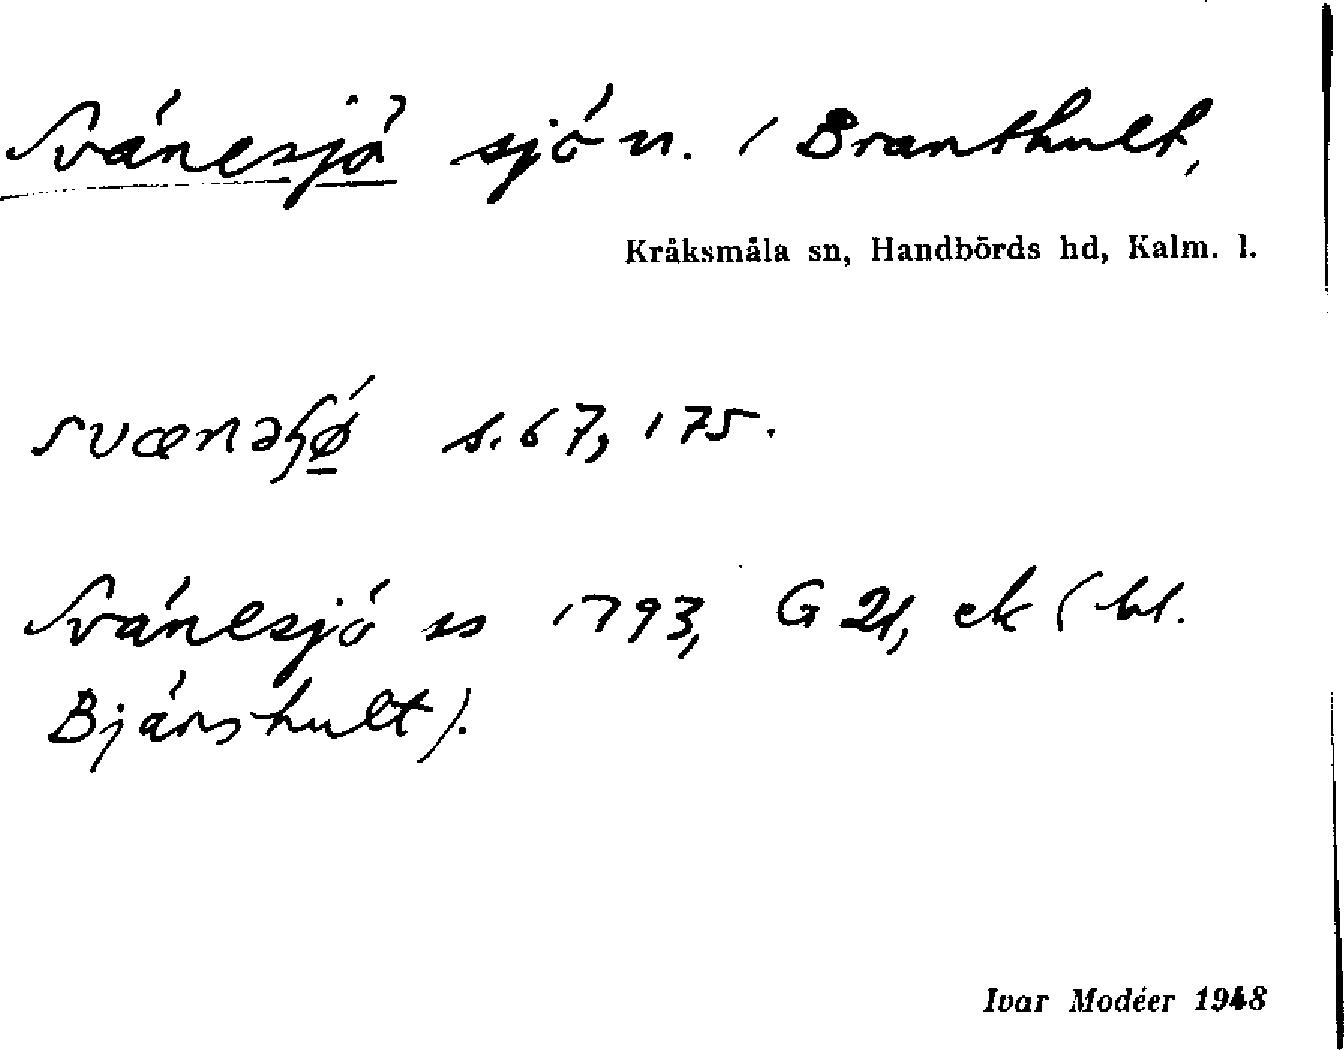 Svänesjö sjö n. i Branthult,
Kråksmåla sn, Handbörds hd, Kalm. l.
s. 67, 175.
Svänesjö ss 1793, G 21, ek (bl.
Bjärshult).
Ivar Modéer 1948